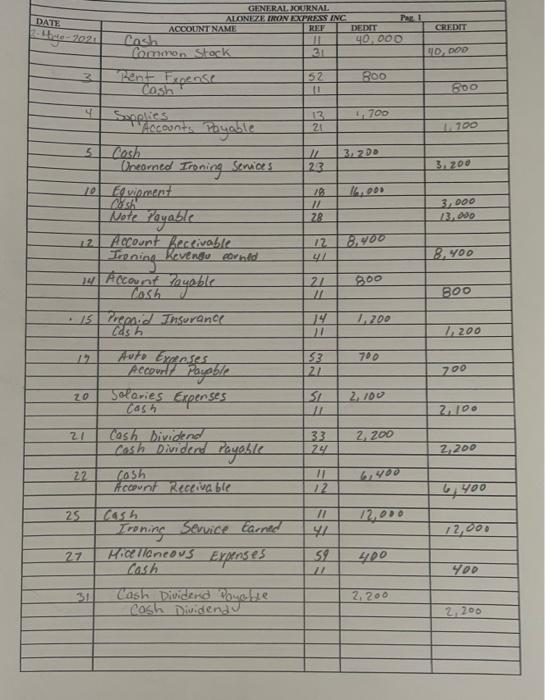 GENERAL JOURNAL
ALONEZE IRON EXPRESS INC. Pag. 1
DATE ACCOUNT NAME REF DEDIT CREDIT
2-Mayo-2021 Cash 11 40,000
Common Stock 31 40,000
3 Rent Expense 52 800
Cash 11 800
4 Supplies 13 1,700
Accounts Payable 21 1,700
5 Cash 11 3,200
Unearned Ironing Services 23 3,200
10 Equipment 18 16,000
Cash 11 3,000
Note Payable 28 13,000
12 Account Receivable 12 8,400
Ironing Revengu earned 41 8,400
14 Account Payable 21 800
Cash 11 800
15 Prepaid Insurance 14 1,200
Cash 11 1,200
17 Auto Expenses 53 700
Account Payable 21 700
20 Salaries Expenses 51 2,100
Cash 11 2,100
21 Cash Dividend 33 2,200
Cash Dividend Payable 24 2,200
22 Cash 11 6,400
Account Receivable 12 6,400
25 Cash 11 12,000
Ironing Service Earned 41 12,000
27 Micellaneous Expenses 59 400
Cash 11 400
31 Cash Dividend Payable 2,200
Cash Dividend 2,200